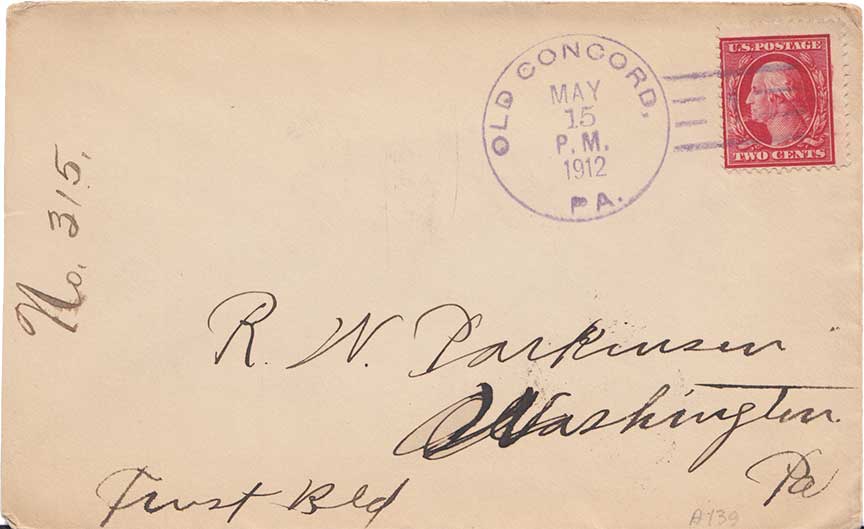 OLD CONCORD,
MAY
15
P. M.
1912
PA.
U.S. POSTAGE
TWO CENTS
No. 315.
R. W. Parkinson
Washington
Pa
Trust Bld
A139